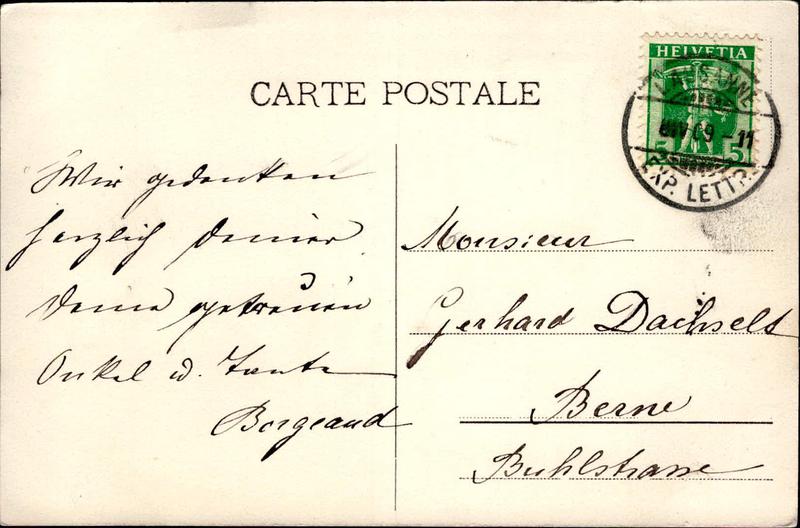 CARTE POSTALE
HELVETIA
5 5
LAUSANNE
09 - 11
EXP. LETTR.
Wir gedenken
herzlich Deiner
Deine getreuen
Onkel u. Tante
Borgeaud
Monsieur
Gerhard Dachselt
Berne
Buhlstrasse